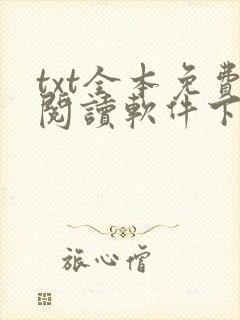 txt全本免費
閱讀軟件下
旅心僧